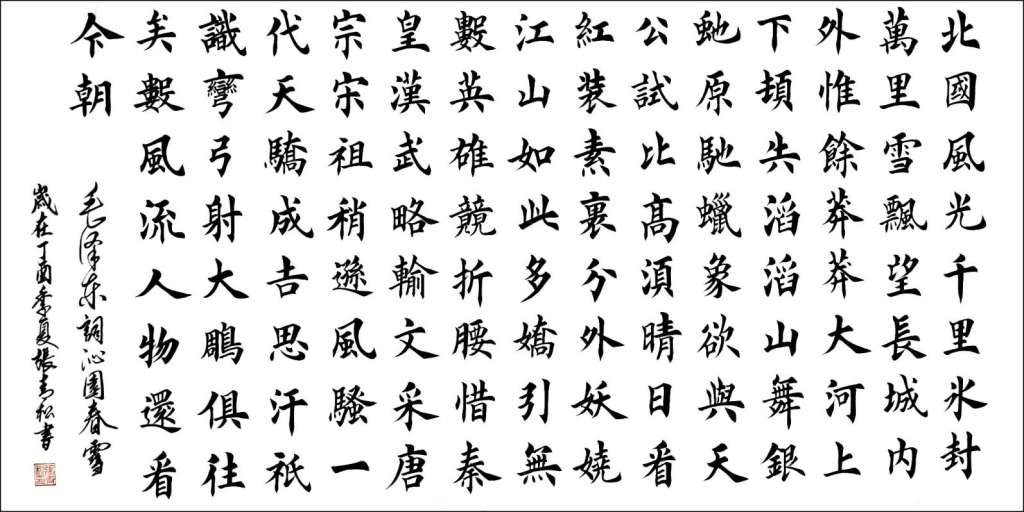 北國風光千里氷封
萬里雪飄望長城内
外惟餘莽莽大河上
下頓失滔滔山舞銀
虵原馳蠟象欲與天
公試比高須晴日看
紅裝素裹分外妖嬈
江山如此多嬌引無
數英雄競折腰惜秦
皇漢武略輸文采唐
宗宋祖稍遜風騷一
代天驕成吉思汗祇
識彎弓射大鵰俱往
矣數風流人物還看
今朝
毛澤东詞沁園春雪
歲在丁酉季夏張松書